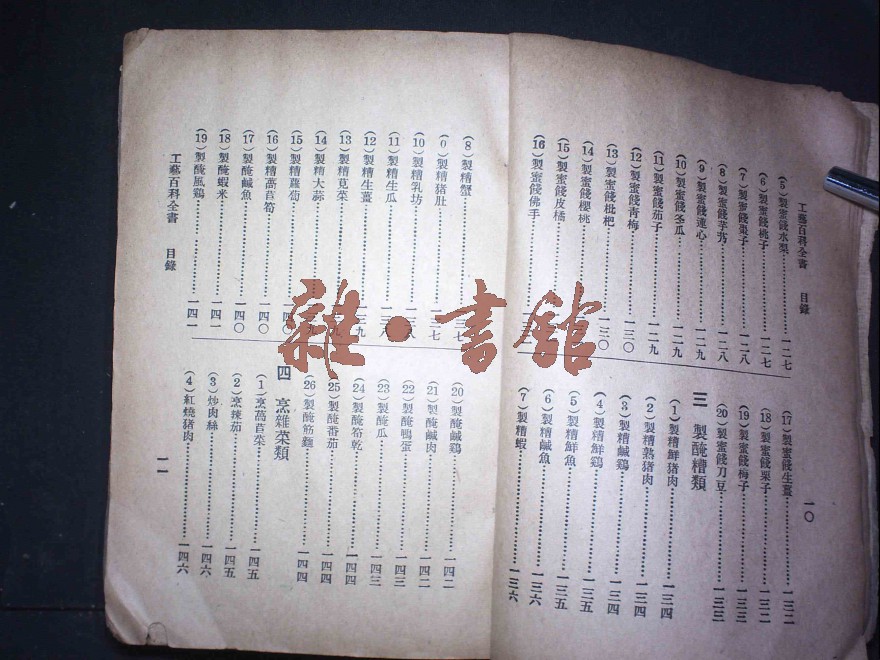 工藝百科全書 目錄 一〇
(5)製蜜餞水梨…………一二七
(6)製蜜餞桃子…………一二七
(7)製蜜餞棗子…………一二八
(8)製蜜餞芋艿…………一二八
(9)製蜜餞連心…………一二九
(10)製蜜餞冬瓜…………一二九
(11)製蜜餞茄子…………一二九
(12)製蜜餞青梅…………一三〇
(13)製蜜餞枇杷…………一三〇
(14)製蜜餞櫻桃…………
(15)製蜜餞皮橘…………
(16)製蜜餞佛手…………
(17)製蜜餞生薑…………一三二
(18)製蜜餞栗子…………一三二
(19)製蜜餞梅子…………一三三
(20)製蜜餞刀豆…………一三三
三 製醃糟類
(1)製糟鮮猪肉…………一三四
(2)製糟熟猪肉…………一三四
(3)製糟鹹鷄…………一三四
(4)製糟鮮鷄…………一三五
(5)製糟鮮魚…………一三五
(6)製糟鹹魚…………一三六
(7)製糟蝦…………一三六
(8)製糟蟹…………一三七
(0)製糟猪肚…………一三七
(10)製糟乳坊…………一三八
(11)製糟生瓜…………
(12)製糟生薑…………
(13)製糟莧菜…………
(14)製糟大蒜…………
(15)製糟蘿蔔…………一四〇
(16)製糟萵苣筍…………一四〇
(17)製醃鹹魚…………一四〇
(18)製醃蝦米…………一四一
(19)製醃風鷄…………一四一
(20)製醃鹹鷄…………一四二
(21)製醃鹹肉…………一四二
(22)製醃鴨蛋…………一四三
(23)製醃瓜…………一四三
(24)製醃筍乾…………一四四
(25)製醃番茄…………一四四
(26)製醃筋麵…………一四四
四 烹雜菜類
(1)烹萵苣菜…………一四五
(2)烹辣茄…………一四五
(3)炒肉絲…………一四六
(4)紅燒猪肉…………一四六
工藝百科全書 目錄 一一
雜·書館